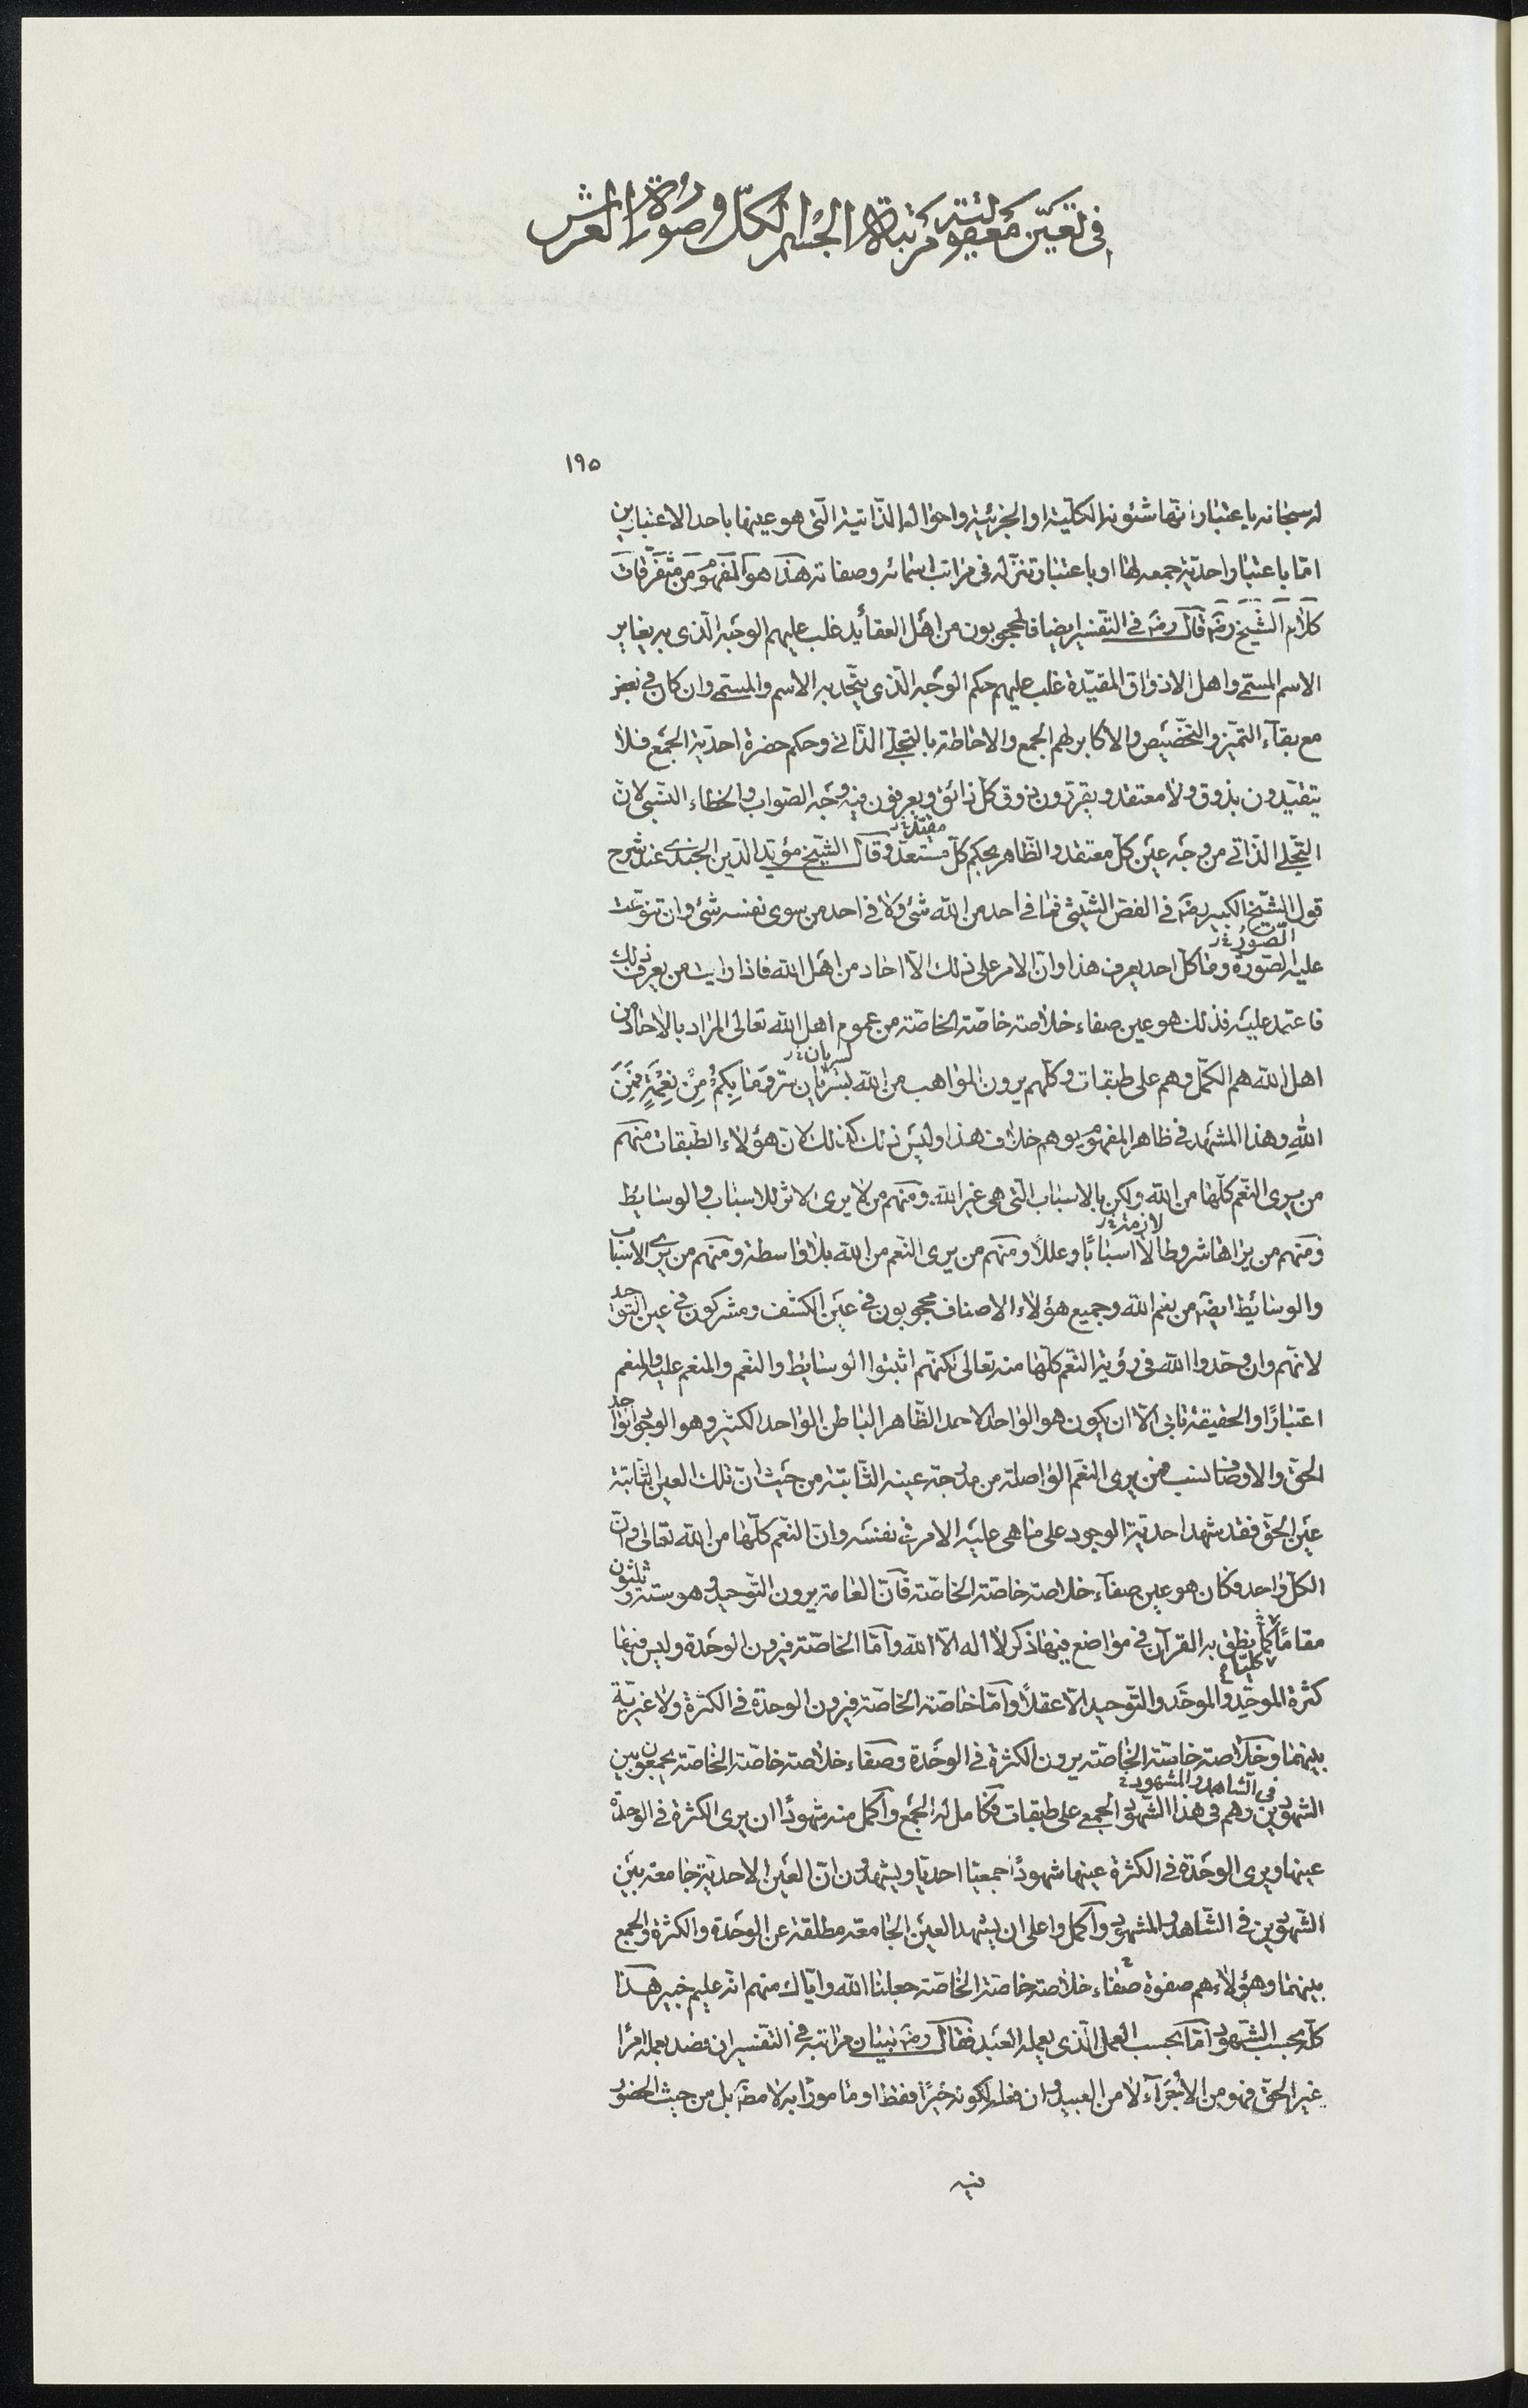 في تعيّن معقوليّة مرتبة الجسم الكلّ وصورة العرش
١٩٥
له سبحانه باعتبار انّها شئونه الكليّة او الجزئيّة واحواله الذّاتية الّتى هو عينها باحد الاعتبارين
امّا باعتبار احديّة جمعه لها او باعتبار تنزّله فى مراتب اسمائه وصفاته هذا هو المفهوم من متفرّقات
كلام الشّيخ رضه قال رضه فى التّفسير ايضا فالمحجوبون من اهل العقائد غلب عليهم الوجه الّذى به يغاير
الاسم المسمّى واهل الاذواق المقيّدة غلب عليهم حكم الوجه الّذى يتّحد به الاسم والمسمّى وان كان فى بعض
مع بقاء التّميّز والتخصّيص والاكابر لهم الجمع والاحاطة بالتجلّى الذّاتى وحكم حضرة احديّة الجمع فلا
يتقيّدون بذوق ولا معتقد ويقرّرون ذوق كلّ ذائق ويعرفون فيه وجه الصّواب والخطاء النسّبى لانّ
التّجلى الذّاتى من وجه عين كلّ معتقد والظّاهر بحكم كلّ مستعدّ وقال الشّيخ مؤيّد الدّين الجندى عند شرح
معتقد خ ر
قول الشّيخ الكبير رضه فى الفصّ الشّيثى فما فى احد من الله شىء ولا فى احد من سوى نفسه شىء وان تنوّعت
الصّور خ ر
عليه الصّورة وما كلّ احد يعرف هذا وانّ الامر على ذلك الّا احاد من اهل الله فاذا رايت من يعرف ذلك
فاعتمد عليه فذلك هو عين صفاء خلاصة خاصّة الخاصّة من عموم اهل الله تعالى المراد بالاحاد من
اهل الله هم الكمّل وهم على طبقات وكلّهم يرون المواهب من الله بسريان سرّ وما بكم من نعمة فمن
لسريان خ ر
الله وهذا المشهد فى ظاهر المفهوم يوهم خلاف هذا وليس ذلك كذلك لانّ هؤلاء الطّبقات منهم
من يرى النّعم كلّها من الله ولكن بالاسباب الّتى هى غير الله ومنهم من لا يرى الاثر للاسباب والوسايط
لازمة خ ر
ومنهم من يراها شروطا لا اسبابًا وعللًا ومنهم من يرى النّعم من الله بلا واسطة ومنهم من يرى الاسباب
والوسائط ايضه من نعم الله وجميع هؤلاء الاصناف محجوبون فى عين الكشف ومشركون فى عين التّواحد
لانّهم وان وحّدوا الله فى رؤية النّعم كلّها منه تعالى لكنّهم اثبتوا الوسايط والنّعم والمنعم عليه والمنعم
اعتبارًا والحقيقة تابى الّا ان يكون هو الواحد الاحد الظّاهر الباطن الواحد الكثير وهو الوجود الواحد
الحقّ والاوصاف نسب فمن يرى النّعم الواصلة من مدرجة عينه الثّابتة من حيث انّ تلك العين الثّابتة
عين الحقّ فقد شهد احديّة الوجود على ما هى عليه الامر فى نفسه وانّ النّعم كلّها من الله تعالى وانّ
الكلّ واحد فكان هو عين صفاء خلاصة خاصّة الخاصّة فانّ العامة يرون التّوحيد وهو ستة وثلثون
مقامًا كما نطق به القرآن فى مواضع فيها ذكر لا اله الّا الله وامّا الخاصّة فيرون الوحدة وليس فيها
كليّا خ
كثرة الموحّد والموحَّد والتّوحيد الّا عقلًا وامّا خاصّة الخاصّة فيرون الوحدة فى الكثرة ولا غيريّة
بينهما وخلاصة خاصّة الخاصّة يرون الكثرة فى الوحدة وصفاء خلاصة خاصّة الخاصّة يجمعون بين
فى الشّاهد والمشهود خ
الشّهودين وهم فى هذا الشّهود الجمعى على طبقات فكامل له الجمع واكمل منه شهودًا ان يرى الكثرة فى الوحدة
عينها ويرى الوحدة فى الكثرة عينها شهودًا جمعيّا احديّا ويشهدون انّ العين الاحديّة جامعة بين
الشّهودين فى الشّاهد والمشهود واكمل واعلى ان يشهد العين الجامعة مطلقة عن الوحدة والكثرة والجمع
بينهما وهؤلاء هم صفوة صفاء خلاصة خاصّة الخاصّة جعلنا الله وايّاك منهم انّه عليم خبير هذا
كلّه بحسب الشّهود امّا بحسب العمل الّذى يعمله العبد فقال رضه ببيان مراتبه فى التّفسير ان قصد بعمله امرا
غير الحقّ فهو من الاجراء لا من العبيد وان فعله لكونه خيرًا فقط او مامورًا به لا مطلقا بل من حيث الحضور
فيه